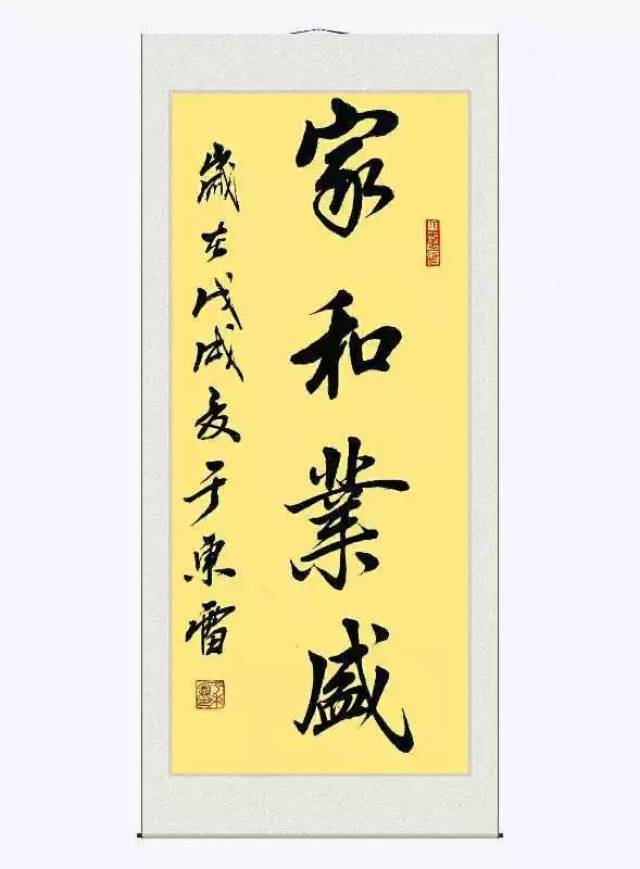 家和業盛
歲在戊戌夏于東